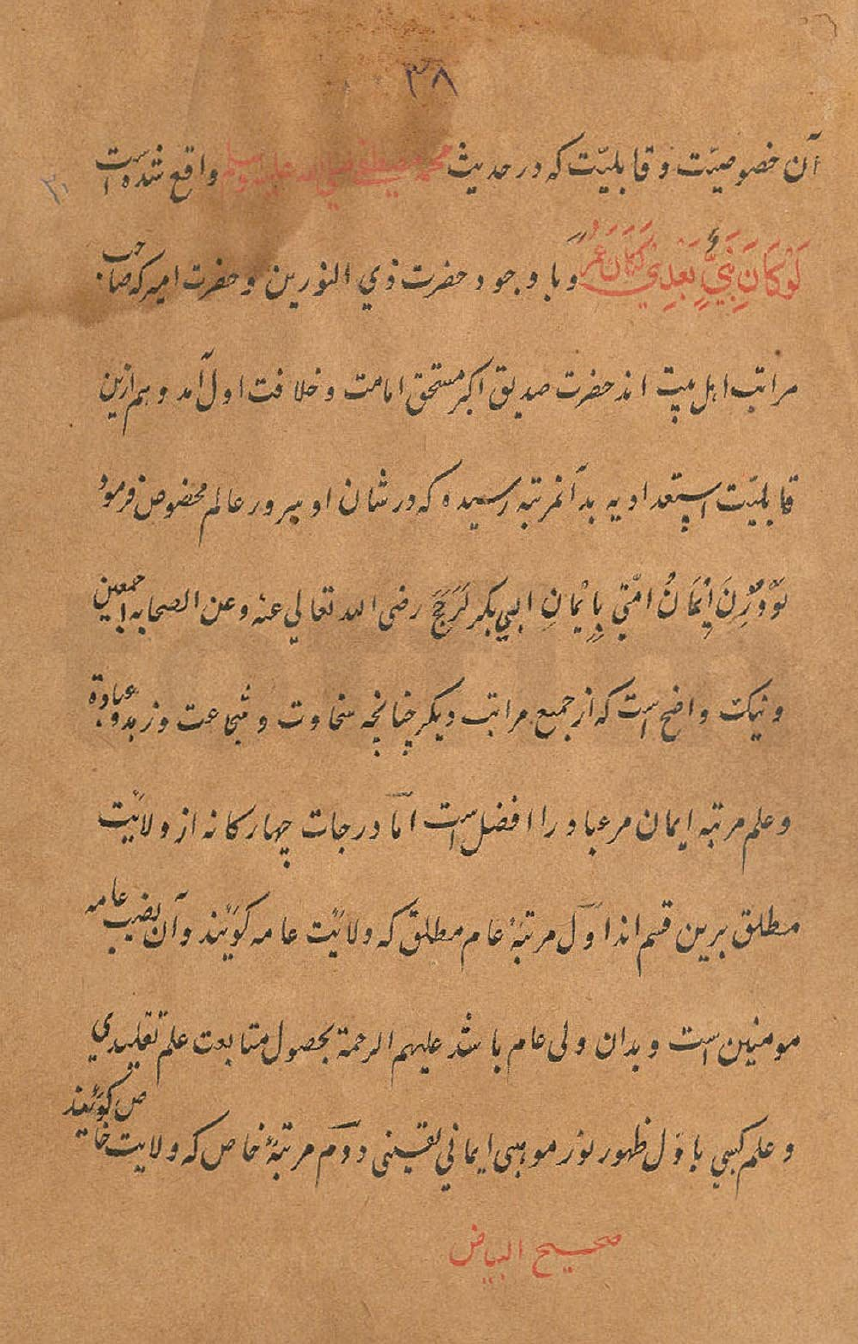 ۳۸
آن خصوصیّت و قابلیّت که در حدیث محمد مصطفی صلی الله علیه وسلم واقع شده است
لَوْكَانَ نَبِيٌّ بَعْدِي لَكَانَ عُمَرُ و با وجود حضرت ذي النورین و حضرت امیر که صاحب
مراتب اهل بیت اند حضرت صدیق اکبر مستحق امامت و خلافت اول آمد و هم ازین
قابلیّت استعدادیه بدآنمرتبه رسیده که در شان او سرور عالم مخصوص فرمود
لَوْ وُزِنَ اِیْمَانُ امَّتِي بِاِیْمَانِ ابي بکر لَرَجَحَ رضی الله تعالي عنه وعن الصحابه اجمعین
و نیک واضح است که از جمیع مراتب دیکر چنانچه سخاوت و شجاعت و زهد و عبادة
و علم مرتبه ایمان مر عباد را افضل است امّا درجات چهار کانه از ولایت
مطلق برین قسم اند اوّل مرتبهٔ عام مطلق که ولایت عامه کویند و آن نصیب عامه
مومنین است و بدان ولی عام باشد علیهم الرحمة بحصول متابعت علم تقلیدي
و علم کسبي باوّل ظهور نور موهبی ایماني یقینی دوم مرتبهٔ خاص که ولایت خاص کویند
صحیح البیاض